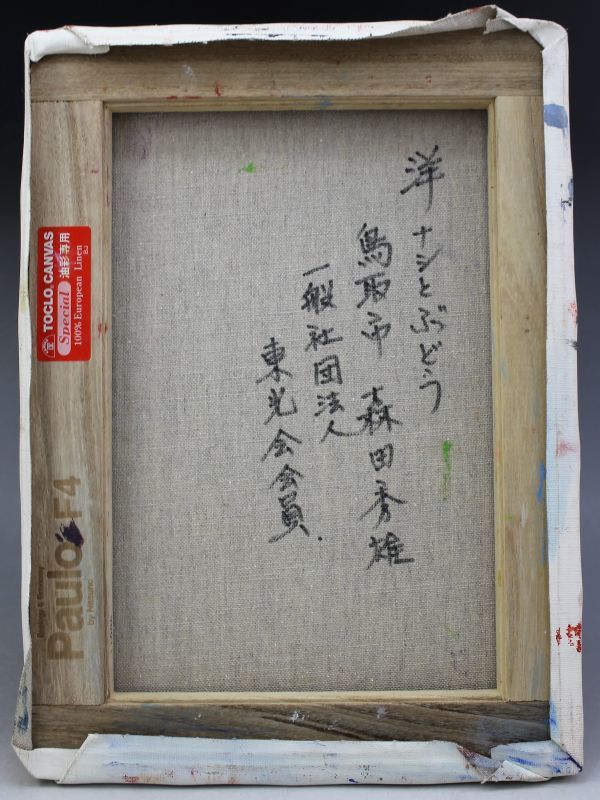 洋ナシとぶどう
鳥取市 森田秀雄
一般社団法人
東光会会員.
TOCLO CANVAS
Special 油彩専用
100% European Linen
BJ
Paulo F4
by Natsuno